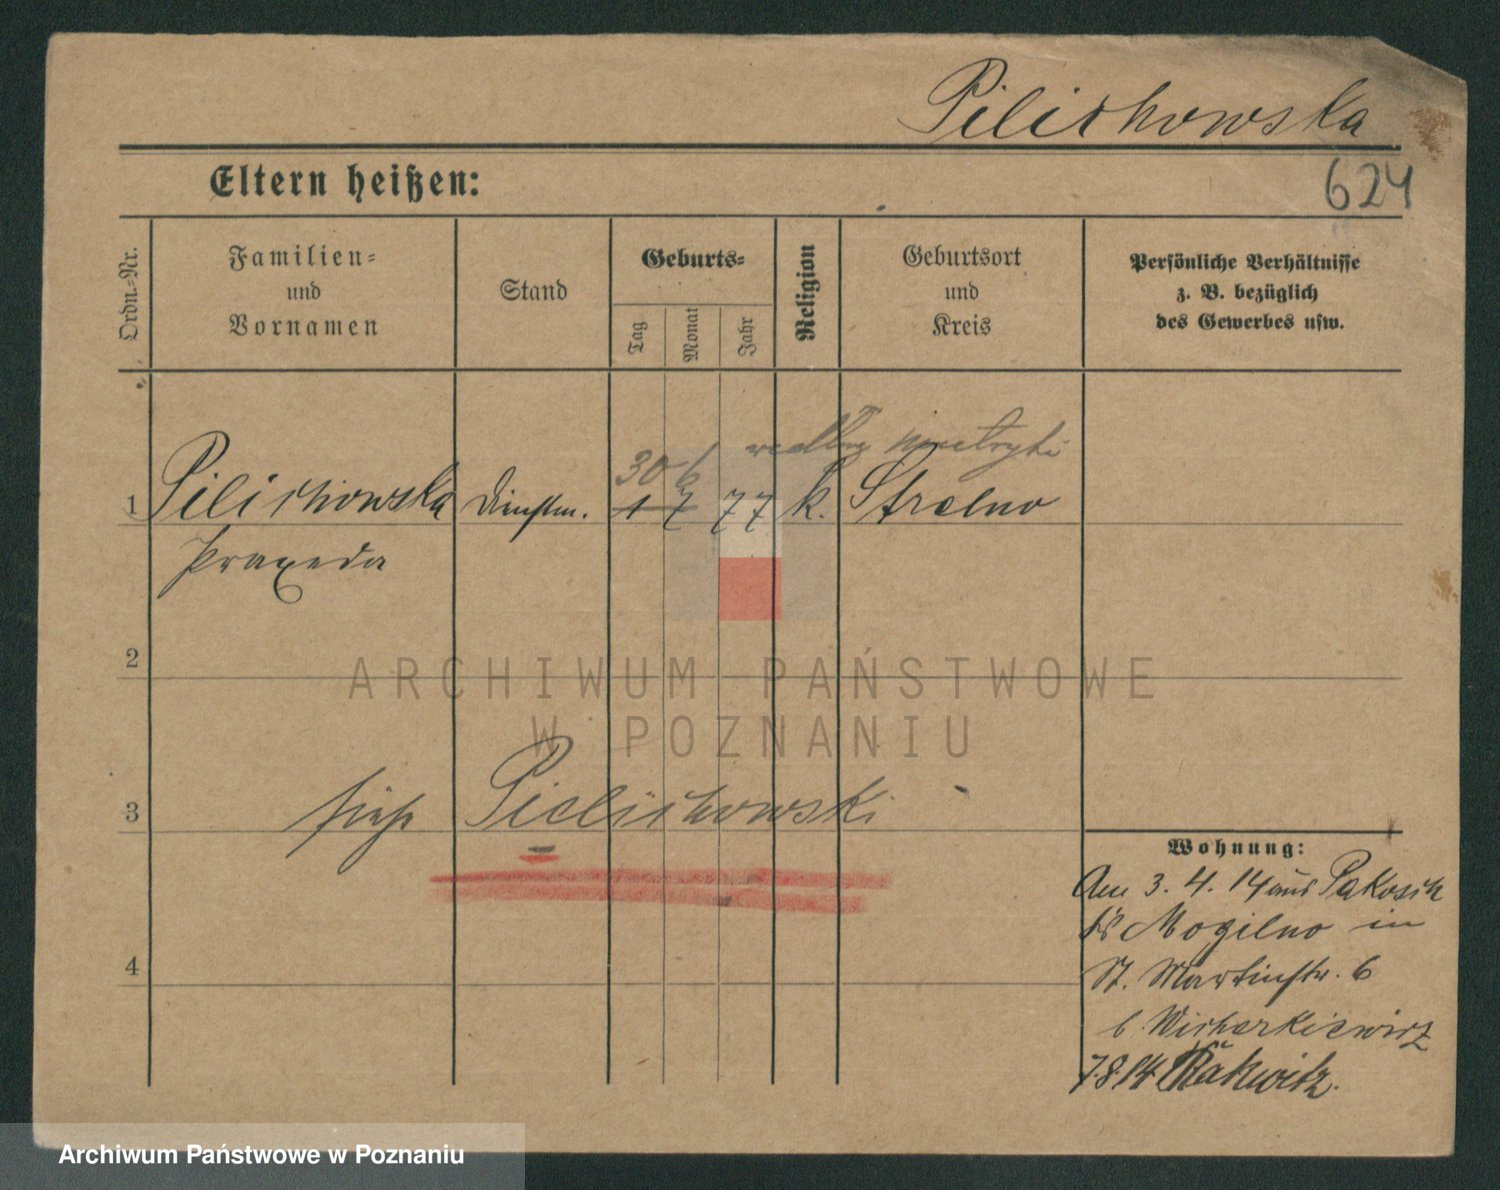 Pilichowska
624
Eltern heißen:
Ordn.-Nr.
Familien-
und
Vornamen
Stand
Geburts-
Tag
Monat
Jahr
Religion
Geburtsort
und
Kreis
Persönliche Verhältnisse
z. B. bezüglich
des Gewerbes usw.
według metryki
30 6
1 Pilichowska Dienstm. 1 7 77 k. Strelno
Praxeda
2
ARCHIWUM PAŃSTWOWE
W POZNANIU
3
siehe Pielichowski
4
Wohnung:
Am 3. 4. 14 aus Pakosch
Kr Mogilno in
St. Martinstr. 6
b. Wicherkiewicz
7.8.14 Rakwitz.
Archiwum Państwowe w Poznaniu